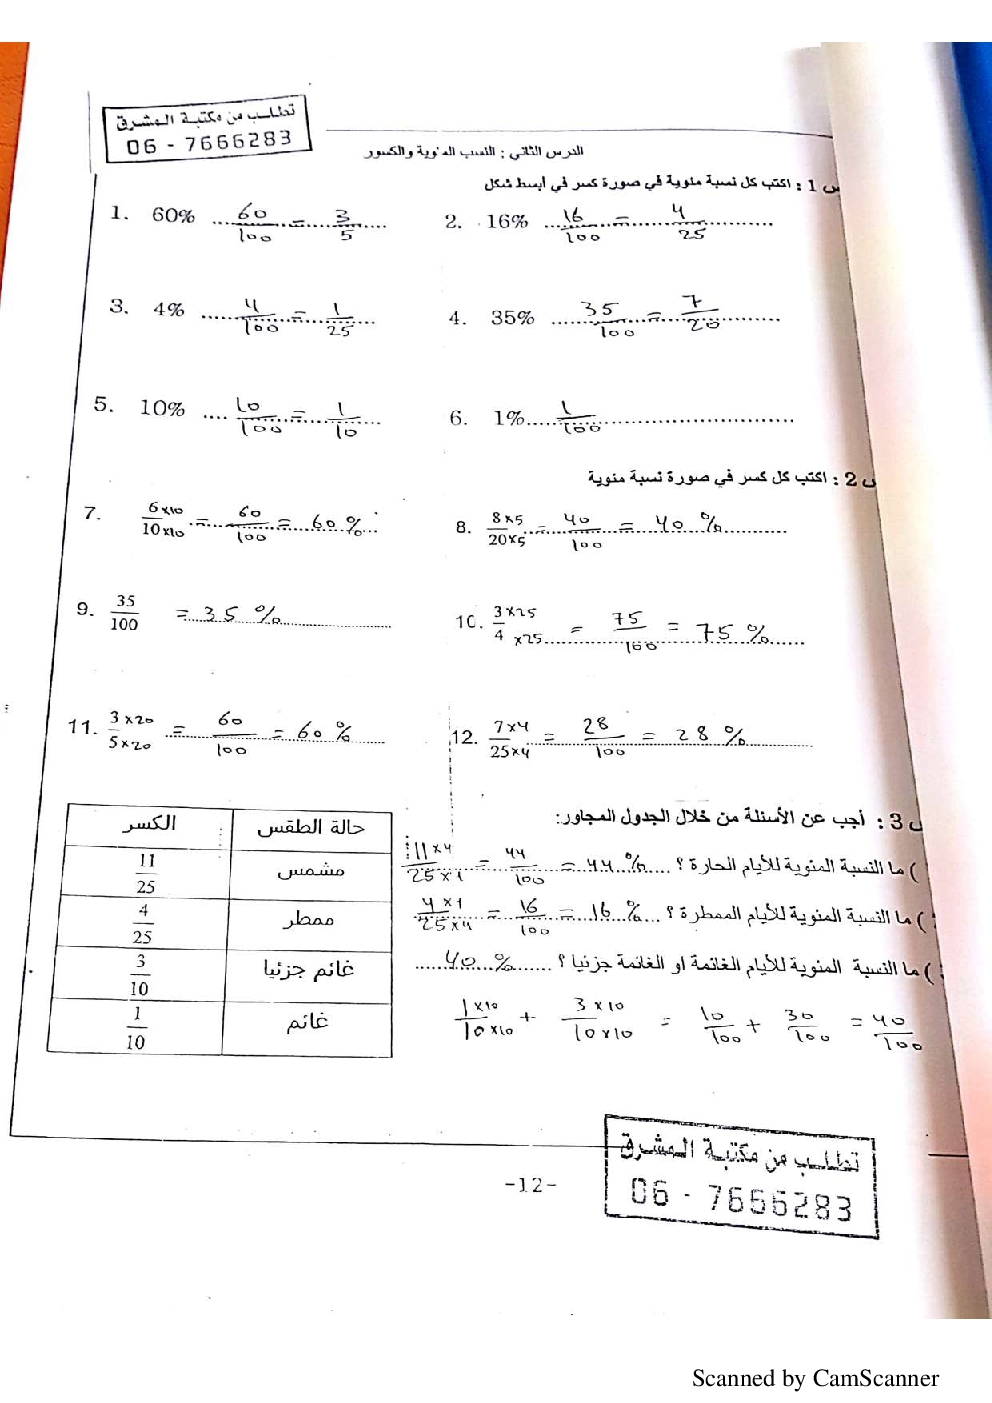 تطلب من مكتبة المشرق
06 - 7666283
الدرس الثاني : النسب المئوية والكسور
س 1 : اكتب كل نسبة مئوية في صورة كسر في أبسط شكل
1. 60% 60/100 = 3/5
2. 16% 16/100 = 4/25
3. 4% 4/100 = 1/25
4. 35% 35/100 = 7/20
5. 10% 10/100 = 1/10
6. 1% 1/100
س 2 : اكتب كل كسر في صورة نسبة مئوية
7. 6×10/10×10 = 60/100 = 60%
8. 8×5/20×5 = 40/100 = 40%
9. 35/100 = 35%
10. 3×25/4×25 = 75/100 = 75%
11. 3×20/5×20 = 60/100 = 60%
12. 7×4/25×4 = 28/100 = 28%
س 3 : أجب عن الأسئلة من خلال الجدول المجاور:
) ما النسبة المئوية للأيام الحارة ؟ 11×4/25×4 = 44/100 = 44%
) ما النسبة المئوية للأيام الممطرة ؟ 4×4/25×4 = 16/100 = 16%
) ما النسبة المئوية للأيام الغائمة او الغائمة جزئيا ؟ 40%
1×10/10×10 + 3×10/10×10 = 10/100 + 30/100 = 40/100
حالة الطقس الكسر
مشمس 11/25
ممطر 4/25
غائم جزئيا 3/10
غائم 1/10
-12-
تطلب من مكتبة المشرق
06 - 7666283
Scanned by CamScanner